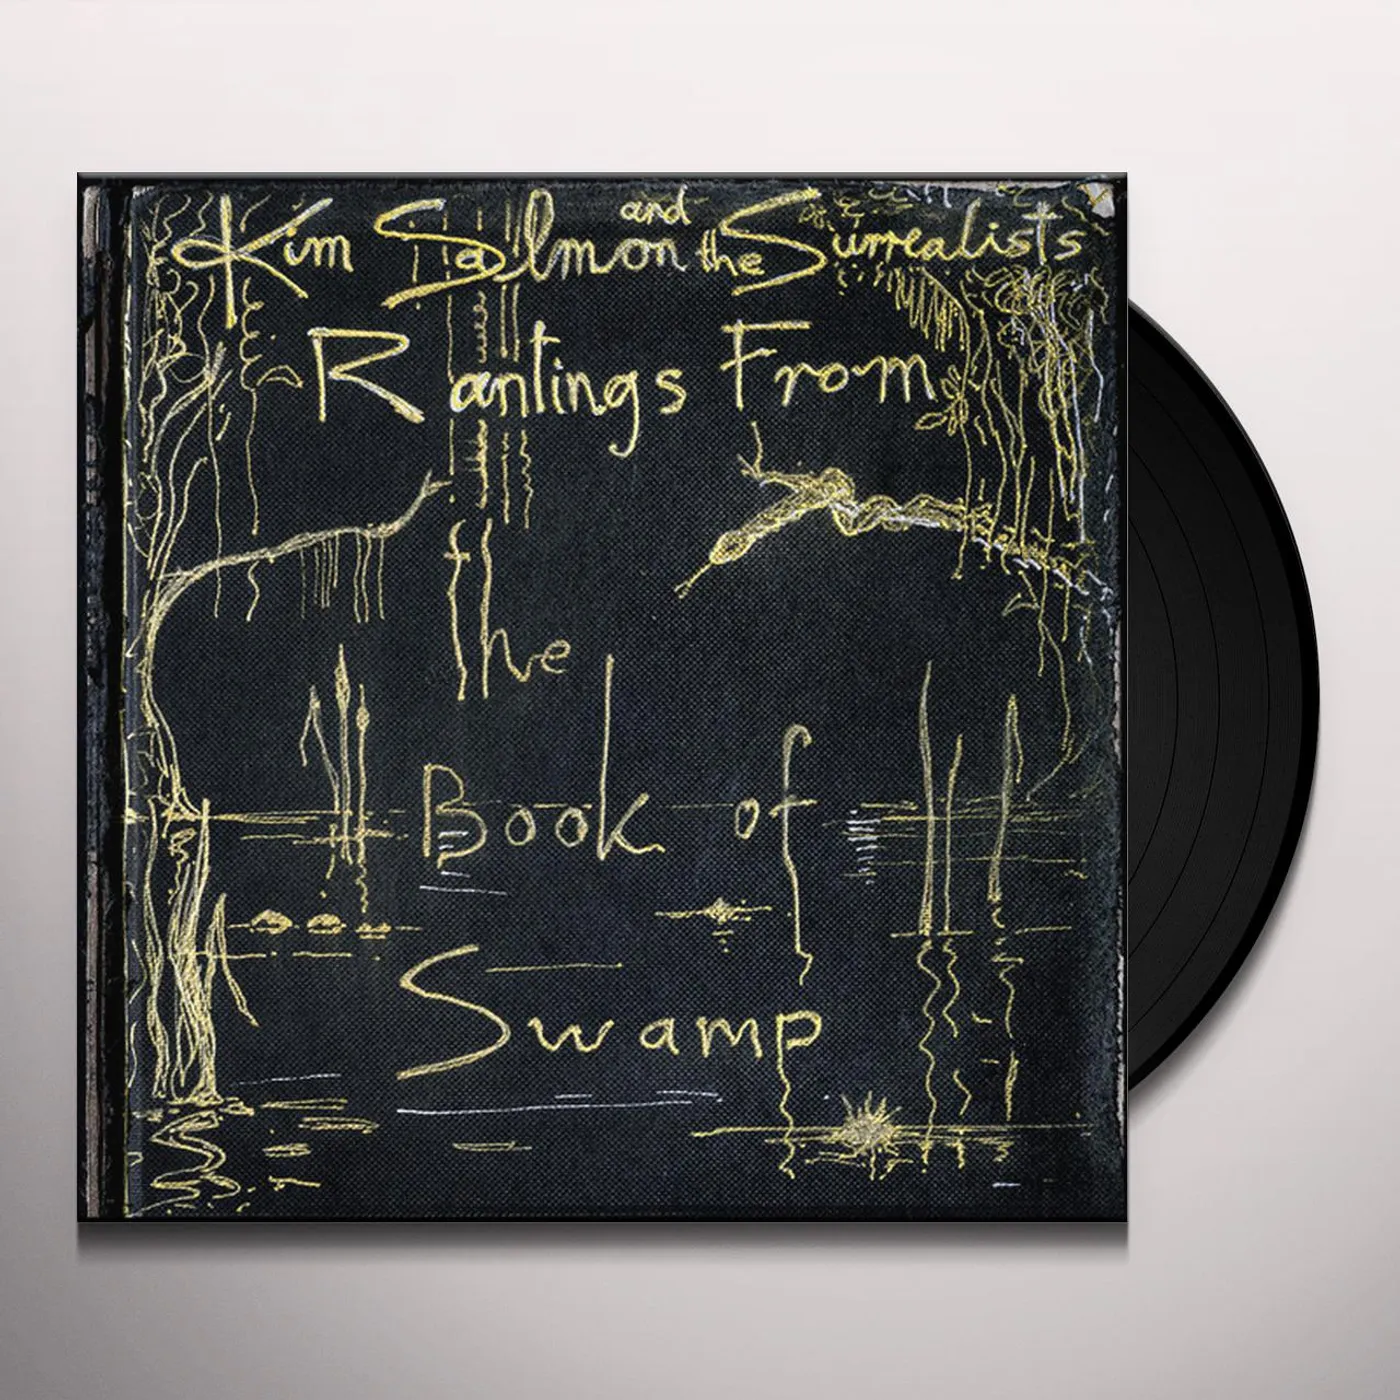 Kim Salmon and the Surrealists
Rantings From
the
Book of
Swamp